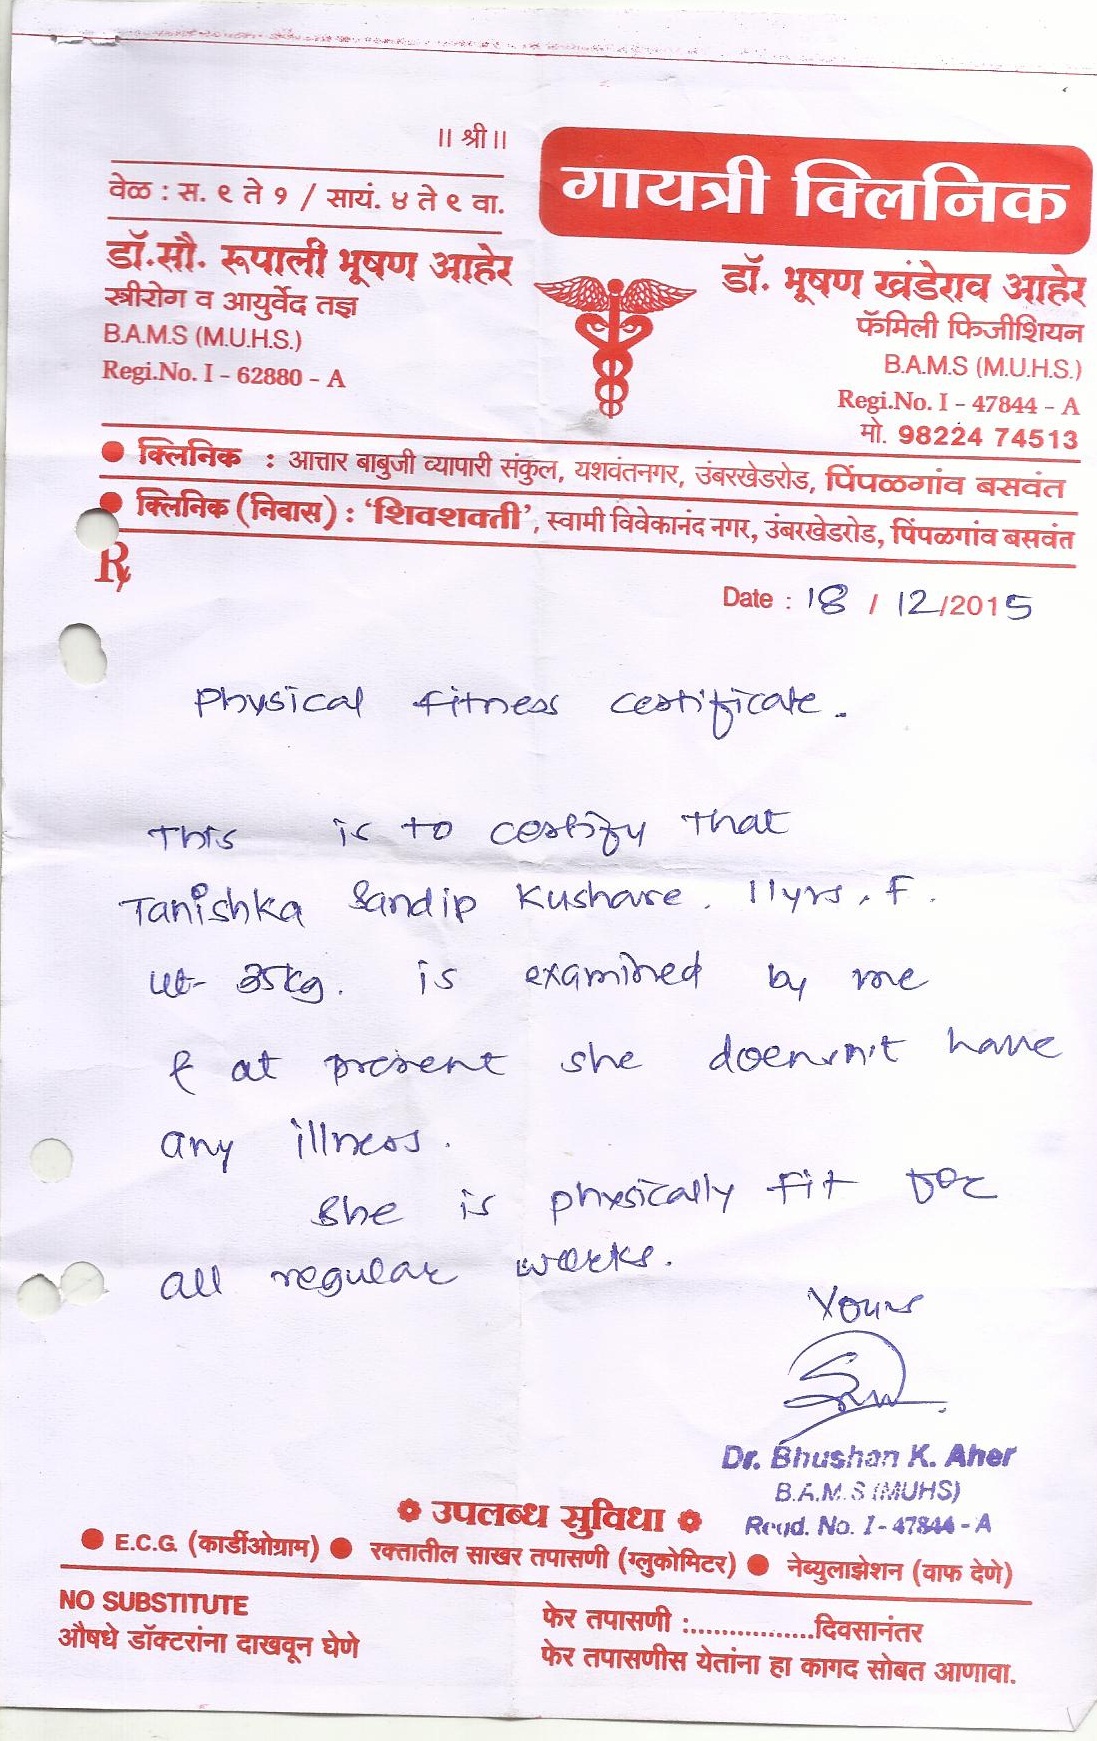 ॥ श्री ॥
गायत्री क्लिनिक
वेळ : स. ९ ते १ / सायं. ४ ते ९ वा.
डॉ.सौ. रूपाली भूषण आहेर
स्त्रीरोग व आयुर्वेद तज्ञ
B.A.M.S (M.U.H.S.)
Regi.No. I - 62880 - A
डॉ. भूषण खंडेराव आहेर
फॅमिली फिजीशियन
B.A.M.S (M.U.H.S.)
Regi.No. I - 47844 - A
मो. 98224 74513
● क्लिनिक : आत्तार बाबुजी व्यापारी संकुल, यशवंतनगर, उंबरखेडरोड, पिंपळगांव बसवंत
● क्लिनिक (निवास) : 'शिवशक्ती', स्वामी विवेकानंद नगर, उंबरखेडरोड, पिंपळगांव बसवंत
Rx
Date : 18 / 12 /2015
Physical fitness certificate.
This is to certify that
Tanishka Sandip Kushare. 11yrs, F.
wt- 35kg. is examined by me
& at present she doensn't have
any illness.
She is physically fit for
all regular works.
Yours
Dr. Bhushan K. Aher
B.A.M.S (MUHS)
Regd. No. I - 47844 - A
उपलब्ध सुविधा
● E.C.G. (कार्डीओग्राम) ● रक्तातील साखर तपासणी (ग्लुकोमिटर) ● नेब्युलाझेशन (वाफ देणे)
NO SUBSTITUTE
औषधे डॉक्टरांना दाखवून घेणे
फेर तपासणी :.................दिवसानंतर
फेर तपासणीस येतांना हा कागद सोबत आणावा.